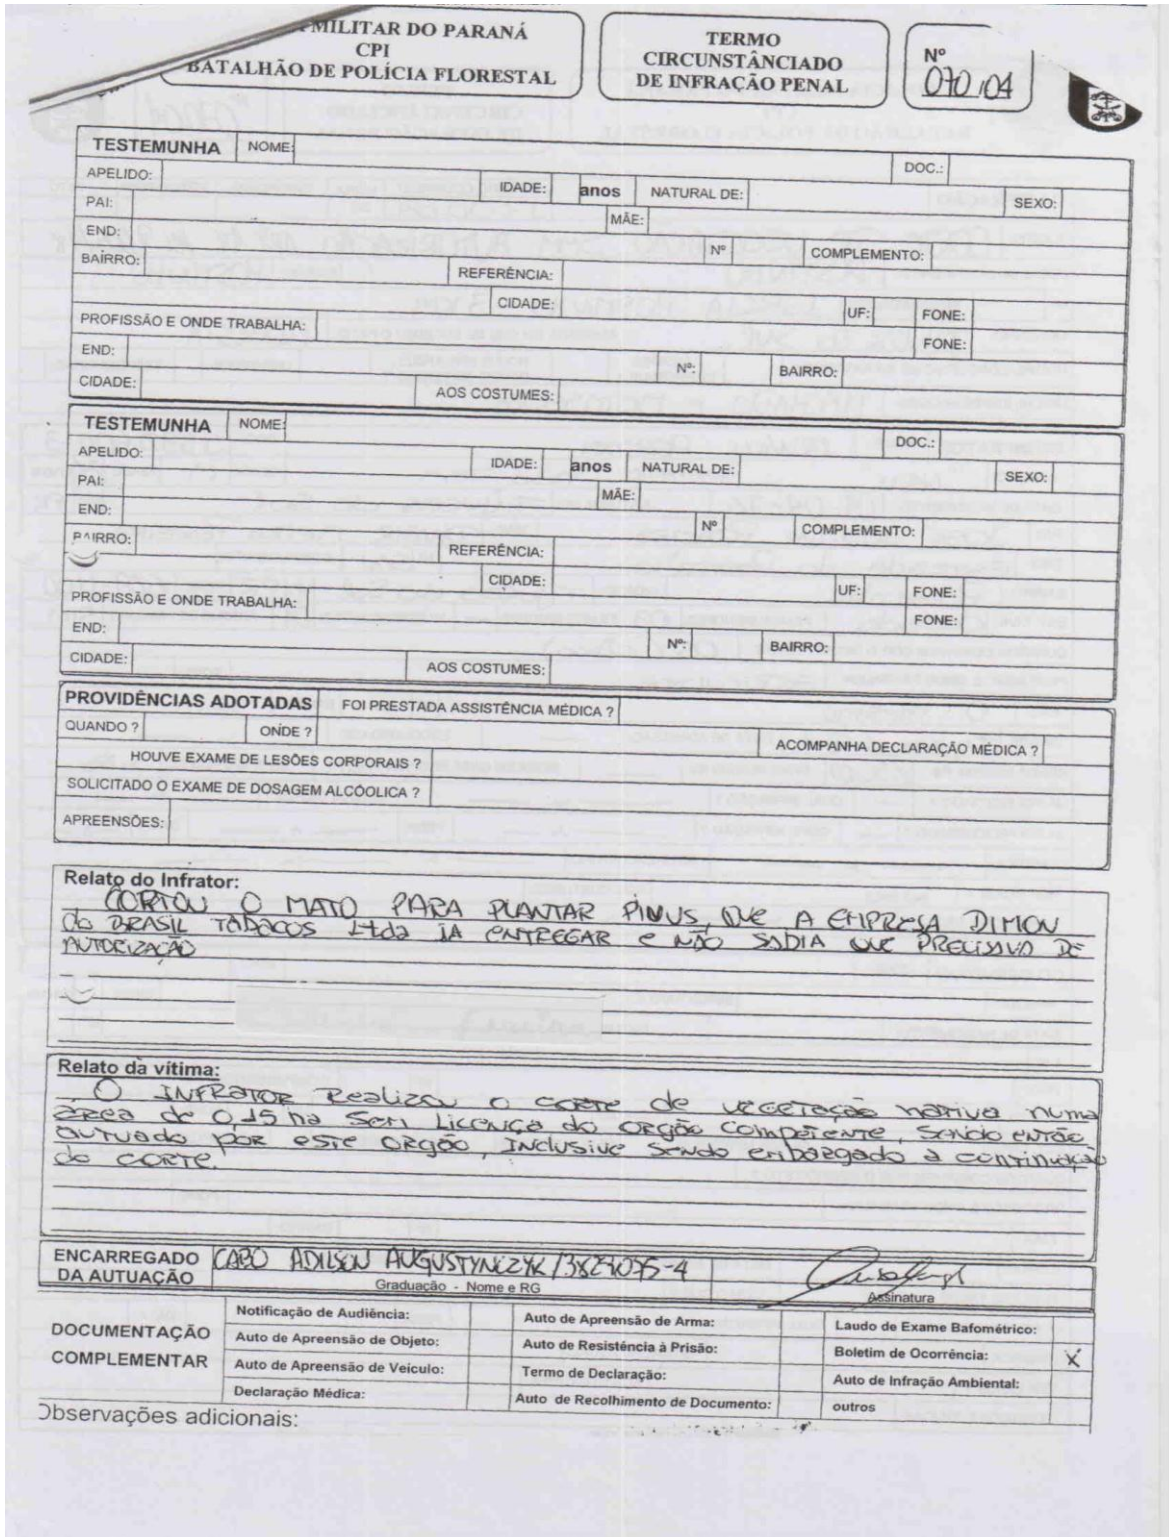 MILITAR DO PARANÁ
CPI
BATALHÃO DE POLÍCIA FLORESTAL
TERMO
CIRCUNSTÂNCIADO
DE INFRAÇÃO PENAL
Nº
070/04
TESTEMUNHA NOME:
DOC.:
APELIDO: IDADE: anos NATURAL DE: SEXO:
PAI: MÃE:
END: Nº COMPLEMENTO:
BAIRRO: REFERÊNCIA:
CIDADE: UF: FONE:
PROFISSÃO E ONDE TRABALHA: FONE:
END: Nº: BAIRRO:
CIDADE: AOS COSTUMES:
TESTEMUNHA NOME:
DOC.:
APELIDO: IDADE: anos NATURAL DE: SEXO:
PAI: MÃE:
END: Nº COMPLEMENTO:
BAIRRO: REFERÊNCIA:
CIDADE: UF: FONE:
PROFISSÃO E ONDE TRABALHA: FONE:
END: Nº: BAIRRO:
CIDADE: AOS COSTUMES:
PROVIDÊNCIAS ADOTADAS FOI PRESTADA ASSISTÊNCIA MÉDICA ?
QUANDO ? ONDE ? ACOMPANHA DECLARAÇÃO MÉDICA ?
HOUVE EXAME DE LESÕES CORPORAIS ?
SOLICITADO O EXAME DE DOSAGEM ALCÓOLICA ?
APREENSÕES:
Relato do Infrator:
CORTOU O MATO PARA PLANTAR PINUS, QUE A EMPRESA DIMON
do BRASIL TABACOS Ltda IA ENTREGAR e NÃO SABIA QUE PRECISAVA DE
AUTORIZAÇÃO
Relato da vítima:
O INFRATOR Realizou o corte de vegetação nativa numa
área de 0,15 ha Sem Licença do orgão competente, sendo então
autuado por este orgão, Inclusive sendo embargado a continuação
do corte.
ENCARREGADO
DA AUTUAÇÃO
CABO ADILSON AUGUSTYNCZYK/3827075-4
Graduação - Nome e RG
Assinatura
DOCUMENTAÇÃO
COMPLEMENTAR
Notificação de Audiência: Auto de Apreensão de Arma: Laudo de Exame Bafométrico:
Auto de Apreensão de Objeto: Auto de Resistência à Prisão: Boletim de Ocorrência: X
Auto de Apreensão de Veículo: Termo de Declaração: Auto de Infração Ambiental:
Declaração Médica: Auto de Recolhimento de Documento: outros
Observações adicionais: